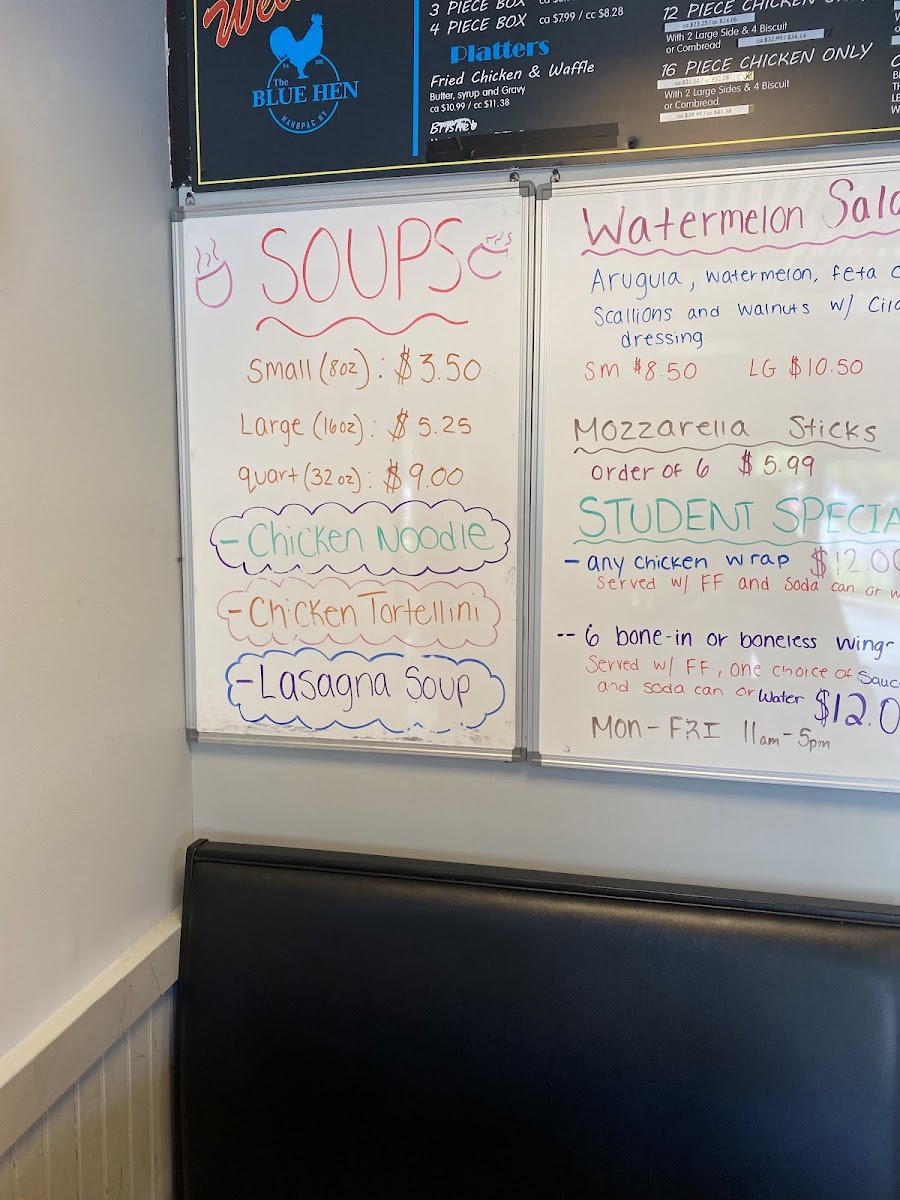 The
BLUE HEN
MAHOPAC NY
3 PIECE BOX
4 PIECE BOX ca $7.99 / cc $8.28
Platters
Fried Chicken & Waffle
Butter, syrup and Gravy
ca $10.99 / cc $11.38
12 PIECE CHICKEN
With 2 Large Side & 4 Biscuit
or Cornbread
16 PIECE CHICKEN ONLY
With 2 Large Sides & 4 Biscuit
or Cornbread
SOUPS
Small (8oz): $3.50
Large (16oz): $5.25
quart (32oz): $9.00
- Chicken Noodle
- Chicken Tortellini
- Lasagna Soup
Watermelon
Arugula, watermelon, feta
Scallions and walnuts w/
dressing
SM $8.50 LG $10.50
Mozzarella Sticks
order of 6 $5.99
STUDENT
- any chicken wrap $12.00
Served w/ FF and soda can or
-- 6 bone-in or boneless
Served w/ FF, one choice of
and soda can or water
Mon-FRI 11am-5pm